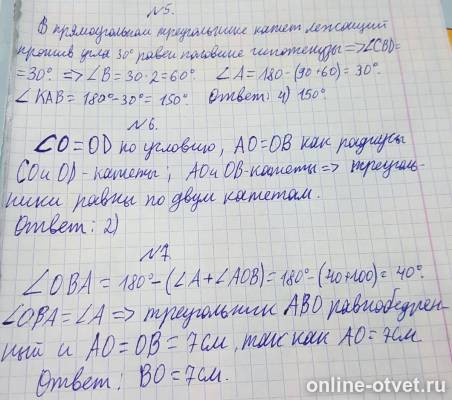 N5.
В прямоугольном треугольнике катет лежащий
против угла 30° равен половине гипотенузы => ∠CBD=
=30°. => ∠B = 30·2=60°. ∠A = 180-(90+60) = 30°.
∠KAB = 180°-30° = 150°. Ответ: 4) 150°.
N6.
CO=OD по условию, AO=OB как радиусы
CO и OD - катеты; AO и OB - катеты => треуголь-
ники равны по двум катетам.
Ответ: 2)
N7
∠OBA = 180°-(∠A+∠AOB) = 180°-(40+100) = 40°.
∠OBA = ∠A => треугольник ABO равнобедрен-
ный и AO = OB = 7см, так как AO = 7см.
Ответ: BO = 7см.
online-otvet.ru